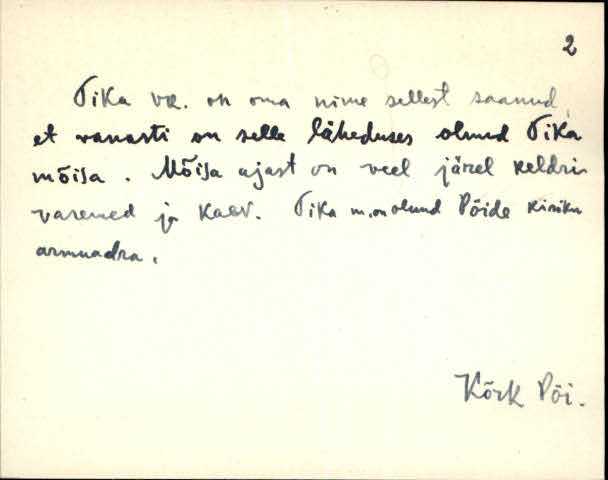 2
Tika va. on oma nime sellest saanud,
et vanasti on selle läheduses olnud Tika
mõisa. Mõisa ajast on veel järel keldri
varemed ja kaev. Tika m. on olnud Pöide kiriku
armuadra.
Kõrk Pöi.